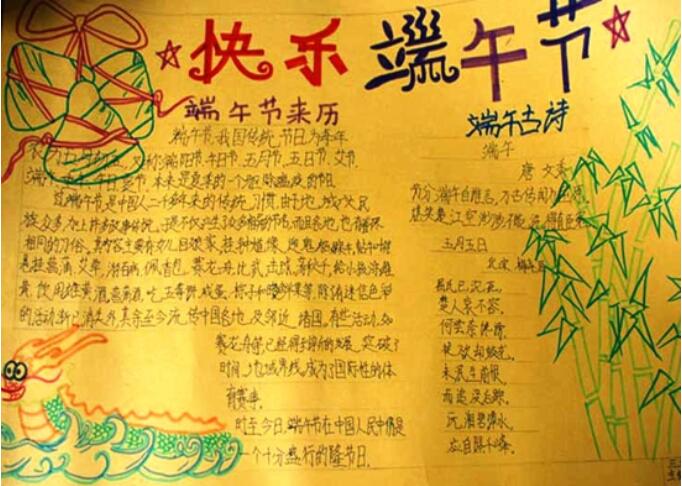 快乐端午节
端午节来历
端午节,我国传统节日,为每年
农历五月初五,又称端阳节.午日节.五月节.五日节.艾节.
端午、午日、夏节.本来是夏季的一个驱除瘟疫的节日.
过端午节是中国人二千多年来的传统习惯,由于地域广大,民
族众多,加上许多故事传说,于是不仅产生了众多相异的节名,而且各地也有着不
相同的习俗。其内容主要有:女儿回娘家,挂钟馗像,
悬挂菖蒲、艾草,佩香包,赛龙舟,比武,击球,荡秋千,给小孩涂雄
黄,饮用雄黄酒、菖蒲酒,吃五毒饼、咸蛋、粽子和时鲜果等,除有迷信色彩
的活动渐已消失外,其余至今流传中国各地及邻近诸国.有些活动,如
赛龙舟等,已经得到新的发展,突破了
时间、地域界线,成为了国际性的体
育赛事.
时至今日,端午节在中国人民中仍是
一个十分盛行的隆重节日.
端午古诗
端午
唐 文秀
节分端午自谁言,万古传闻为屈原。
堪笑楚江空渺渺,不能洗得直臣冤
五月五日
北宋 梅尧臣
屈氏已沉死,
楚人哀不容。
何尝奈谗谤,
徒欲却蛟龙。
未泯生前恨,
而追没后踪。
沅湘碧潭水,
应自照千峰。